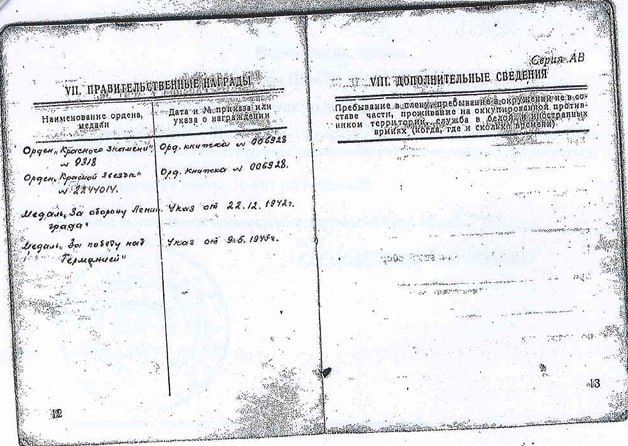 VII. ПРАВИТЕЛЬСТВЕННЫЕ НАГРАДЫ
Наименование ордена,
медали
Дата и № приказа или
указа о награждении
Орден „Красного Знамени"
№ 9318
Орд. книжка № 006928
Орден „Красной Звезды"
№ 2244014.
Орд. книжка № 006928.
Медаль „За оборону Ленин
града"
Указ от 22.12.1942г.
Медаль „За победу над
Германией"
Указ от 9.5.1945г.
12
Серия АВ
VIII. ДОПОЛНИТЕЛЬНЫЕ СВЕДЕНИЯ
Пребывание в плену, пребывание в окружении не в со-
ставе части, проживание на оккупированной против-
ником территории, служба в белой и иностранных
армиях (когда, где и сколько времени)
13